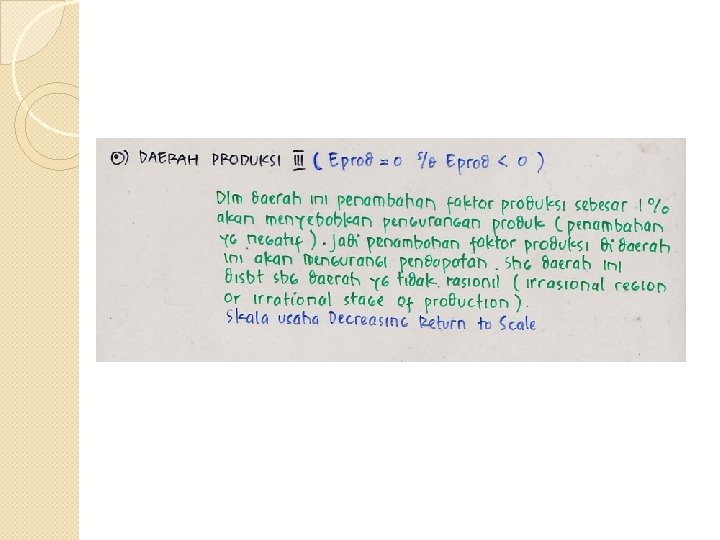 ⊙) DAERAH PRODUKSI III ( Eprod = 0 s/d Eprod < 0 )
Dlm daerah ini penambahan faktor produksi sebesar 1%
akan menyebabkan pengurangan produk (penambahan
yg negatif). Jadi penambahan faktor produksi di daerah
ini akan mengurangi pendapatan. Shg daerah ini
disbt sbg daerah yg tidak rasionil (irrasional region
or irrational stage of production).
Skala usaha Decreasing Return to Scale